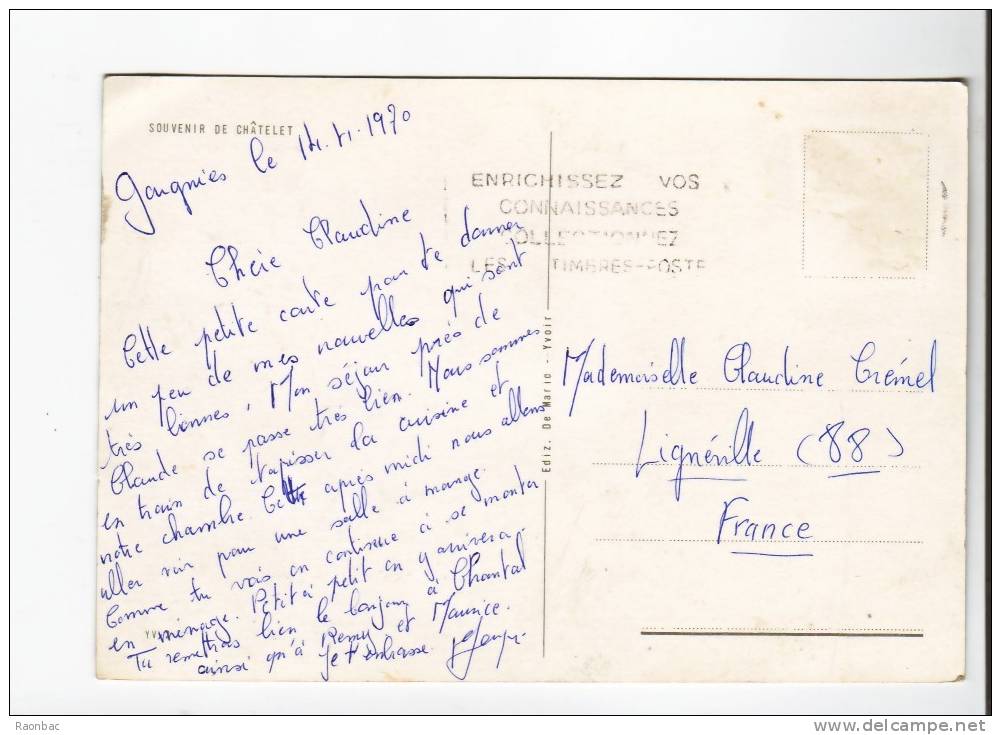 SOUVENIR DE CHÂTELET
Gougnies le 14.VI.1970
Chère Claudine
Cette petite carte pour te donner
un peu de mes nouvelles qui sont
très bonnes. Mon séjour près de
Claude se passe très bien. Nous sommes
en train de tapisser la cuisine et
notre chambre. Cette après midi nous allons
aller voir pour une salle à mange.
Comme tu vois on continue à se monter
en ménage. Petit à petit on y arrivera.
Tu remettras bien le bonjour à Chantal
ainsi qu'à Remy et Maurice.
Je t'embrasse.
YV
Ediz. De Mario - Yvoir
ENRICHISSEZ VOS
CONNAISSANCES
COLLECTIONNEZ
LES TIMBRES-POSTE
Mademoiselle Claudine Crémel
Lignéville (88)
France
Raonbac
www.delcampe.net